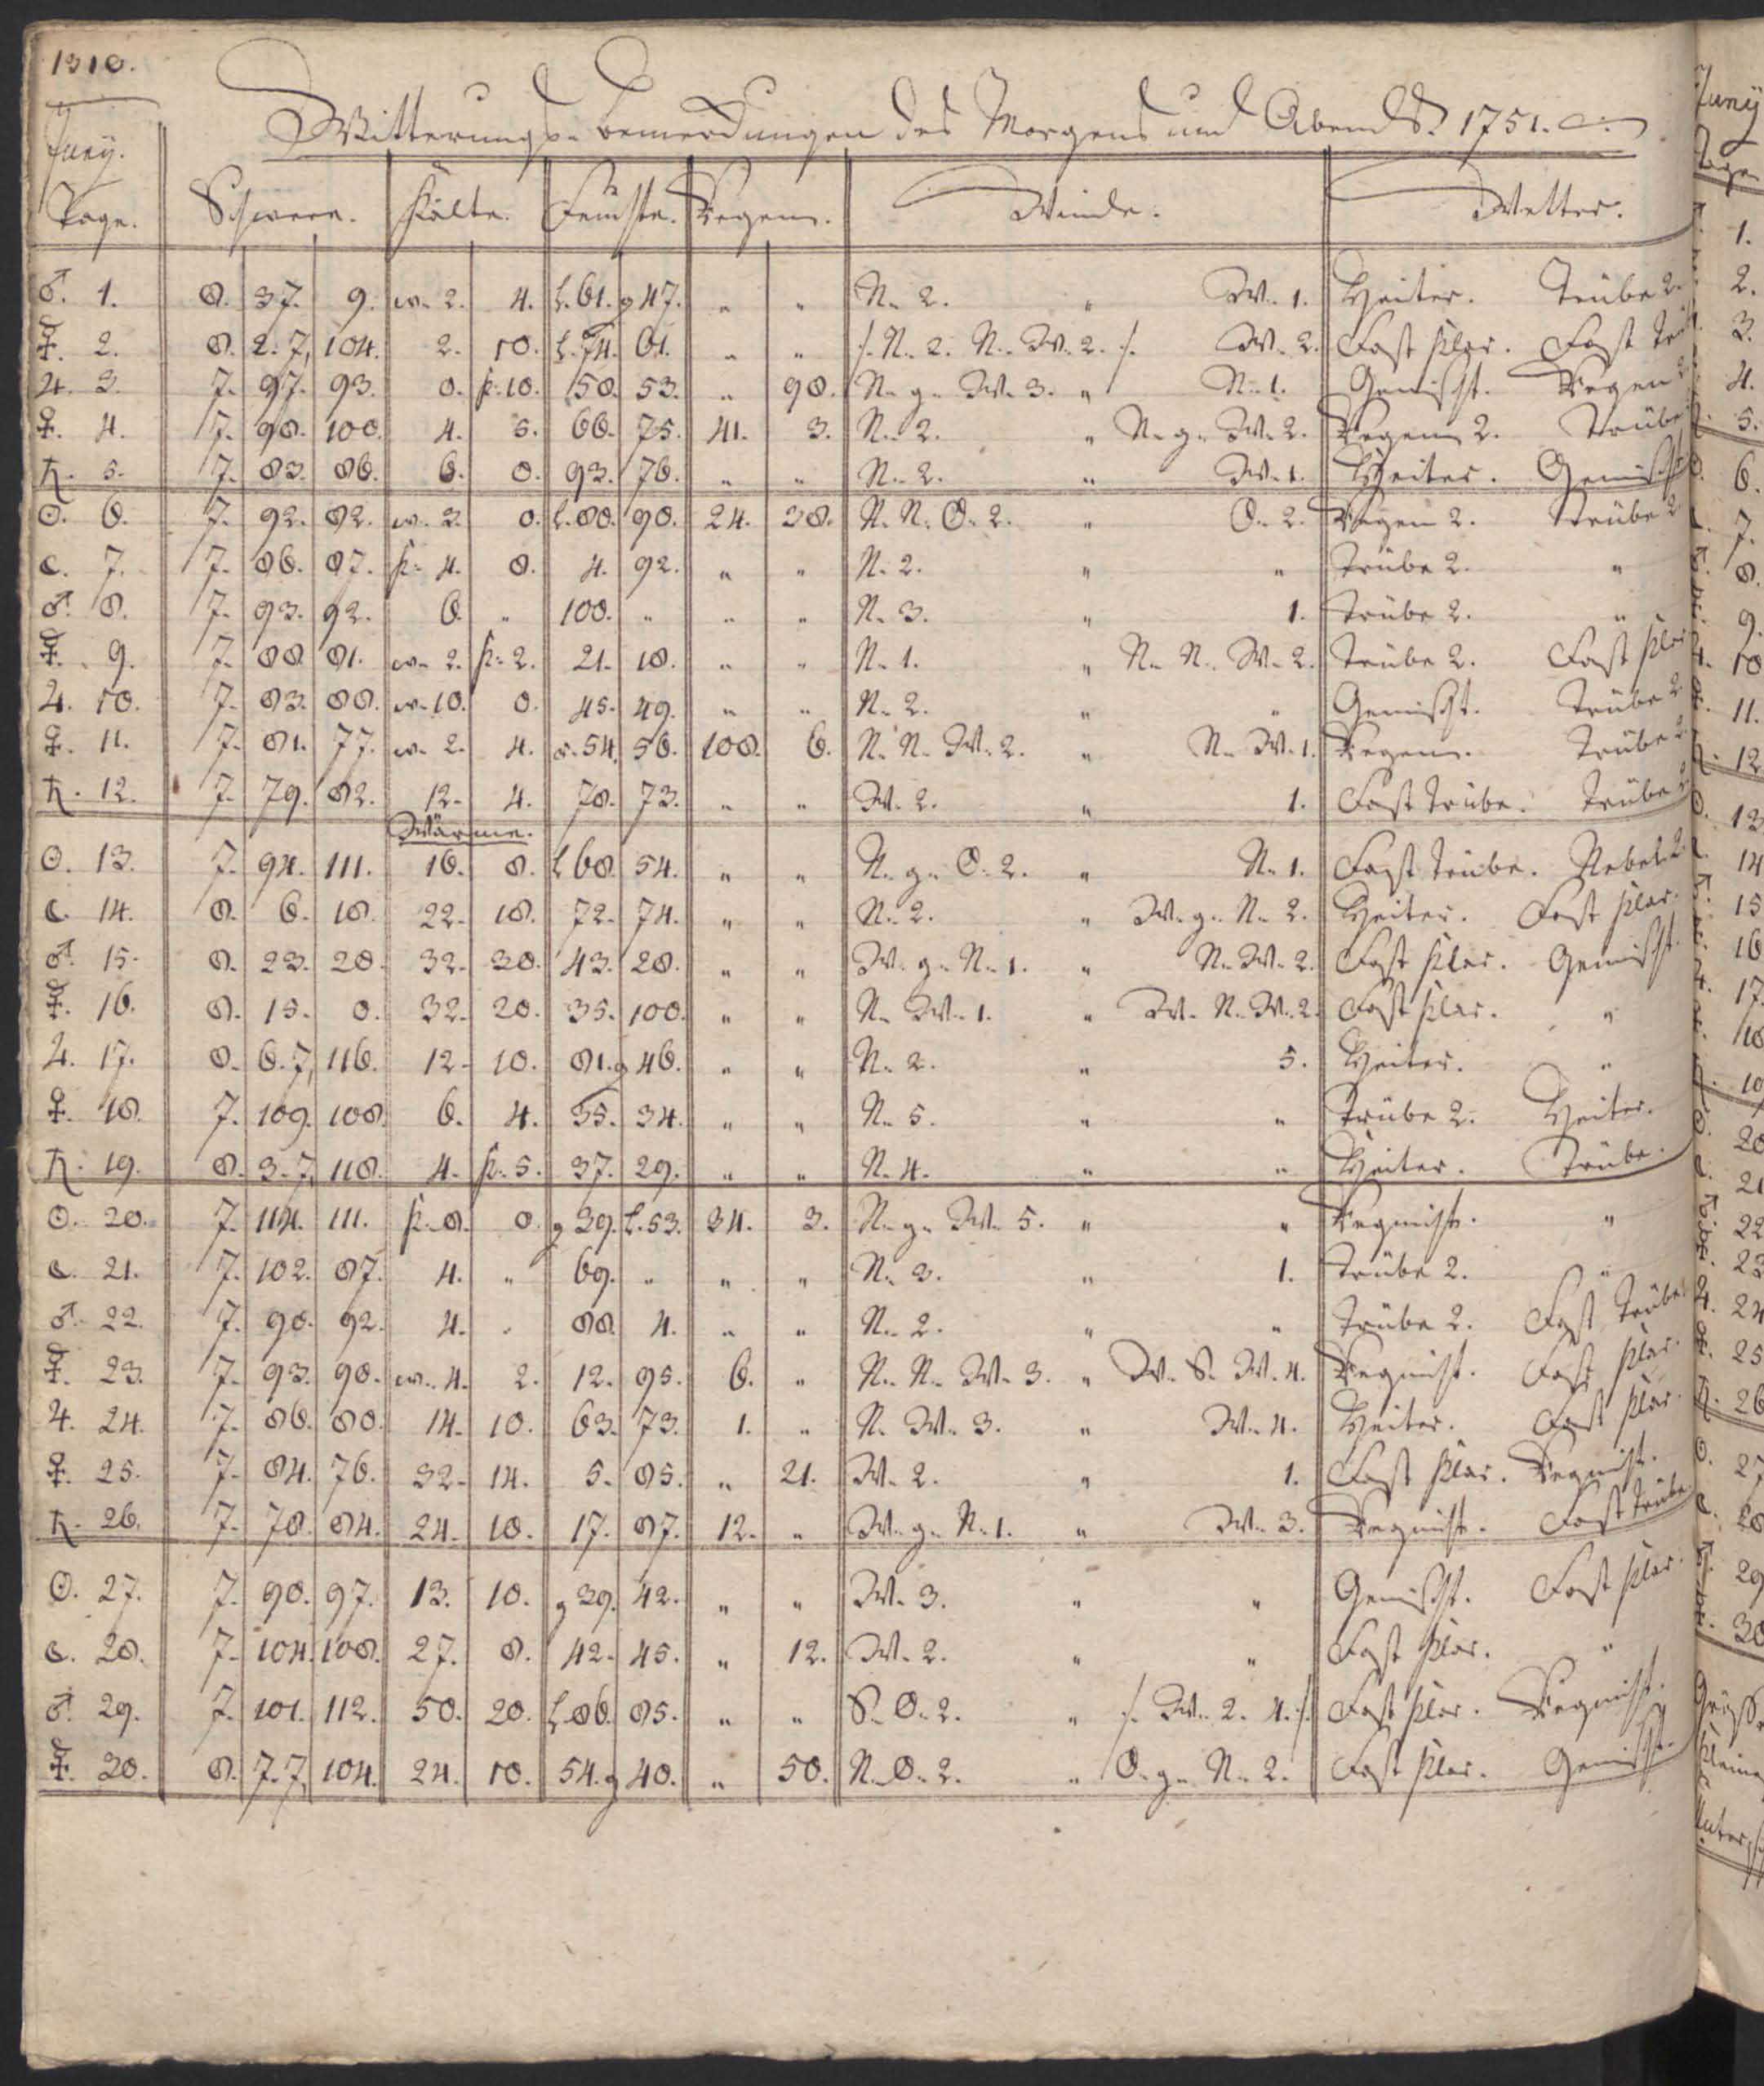 1310.
Witterungs-bemerckungen des Morgens und Abends. 1751.
Juny.
Tage. Schwere. Kälte. Feuchte. Regen. Winde. Wetter.
♂. 1. 8. 37. 9. w. 2. 4. l. 61. g 47. " " N. 2. " W. 1. Heiter. Trübe 2.
☿. 2. 8. 2. 7, 104. 2. 10. l. 74. 61. " " /. N. 2. N. W. 2. /. W. 2. Fast klar.
♃. 3. 7. 97. 93. 0. k. 10. 58. 53. " 98. N. g. W. 3. " N. 1. Gemischt. Regen 2
♀. 4. 7. 98. 100. 4. 5. 66. 75. 41. 3. N. 2. " N. g. W. 2. Regen 2. Trübe
♄. 5. 7. 83. 86. 6. 0. 93. 76. " " N. 2. " W. 1. Heiter. Gemischt
☉. 6. 7. 92. 82. w. 3. 0. l. 80. 98. 24. 38. N. N. O. 2. " O. 2. Regen 2. Trübe 2
☾. 7. 7. 86. 87. k. 4. 8. 4. 92. " " N. 2. " " Trübe 2. "
♂. 8. 7. 93. 92. 6. " 100. " " " N. 3. " 1. Trübe 2. "
☿. 9. 7. 88. 81. w. 2. k. 2. 21. 18. " " N. 1. " N. N. W. 2. Trübe 2. Fast klar
♃. 10. 7. 83. 80. w. 10. 0. 45. 49. " " N. 2. " " Gemischt. Trübe 2
♀. 11. 7. 81. 77. w. 2. 4. 54. 56. 108. 6. N. N. W. 2. " N. W. 1. Regen. Trübe 2
♄. 12. 7. 79. 82. 12. 4. 78. 73. " " W. 2. " 1. Fast trübe. Trübe 2
Wärme.
☉. 13. 7. 94. 111. 16. 8. l 68. 54. " " N. g. O. 2. " N. 1. Fast trübe. Nebel 2
☾. 14. 8. 6. 18. 22. 18. 72. 74. " " N. 2. " W. g. N. 2. Heiter. Fast klar.
♂. 15. 8. 23. 20. 32. 30. 43. 28. " " W. g. N. 1. " N. W. 2. Fast klar. Gemischt.
☿. 16. 8. 15. 0. 32. 20. 35. 100. " " N. W. 1. " W. N. W. 2. Fast klar. "
♃. 17. 8. 6. 7, 116. 12. 10. 81. g 46. " " N. 2. " 5. Heiter. "
♀. 18. 7. 109. 108. 6. 4. 35. 34. " " N. 5. " " Trübe 2. Heiter.
♄. 19. 8. 3. 7, 118. 4. k. 5. 37. 29. " " N. 4. " " Heiter. Trübe.
☉. 20. 7. 114. 111. k. 8. 0. g 39. l. 53. 34. 3. N. g. W. 5. " " Regnicht. "
☾. 21. 7. 102. 87. 4. " 69. " " " N. 3. " 1. Trübe 2. "
♂. 22. 7. 90. 92. 4. " 88. 4. " " N. 2. " " Trübe 2. Fast trübe
☿. 23. 7. 93. 90. w. 4. 2. 12. 95. 6. " N. N. W. 3. " W. S. W. 4. Regnicht. Fast klar.
♃. 24. 7. 86. 80. 14. 10. 63. 73. 1. " N. W. 3. " W. 4. Heiter. Fast klar.
♀. 25. 7. 84. 76. 32. 14. 5. 85. " 21. W. 2. " 1. Fast klar. Regnicht.
♄. 26. 7. 78. 84. 24. 10. 17. 87. 12. " W. g. N. 1. " W. 3. Regnicht. Fast trübe
☉. 27. 7. 90. 97. 13. 10. g 39. 42. " " W. 3. " " Gemischt. Fast klar.
☾. 28. 7. 104. 108. 27. 8. 42. 45. " 12. W. 2. " " Fast klar. "
♂. 29. 7. 101. 112. 50. 20. l. 86. 85. " " S. O. 2. " /. W. 2. 4. /. Fast klar. Regnicht.
☿. 30. 8. 7. 7, 104. 24. 10. 54. g 40. " 50. N. O. 2. " O. g. N. 2. Fast klar. Gemischt.
Juny
1.
2.
3.
4.
5.
6.
7.
8.
9.
10
11.
12
13
14
15
16
17.
18
19
20
21
22
23
24
25
26
27
28
29
30